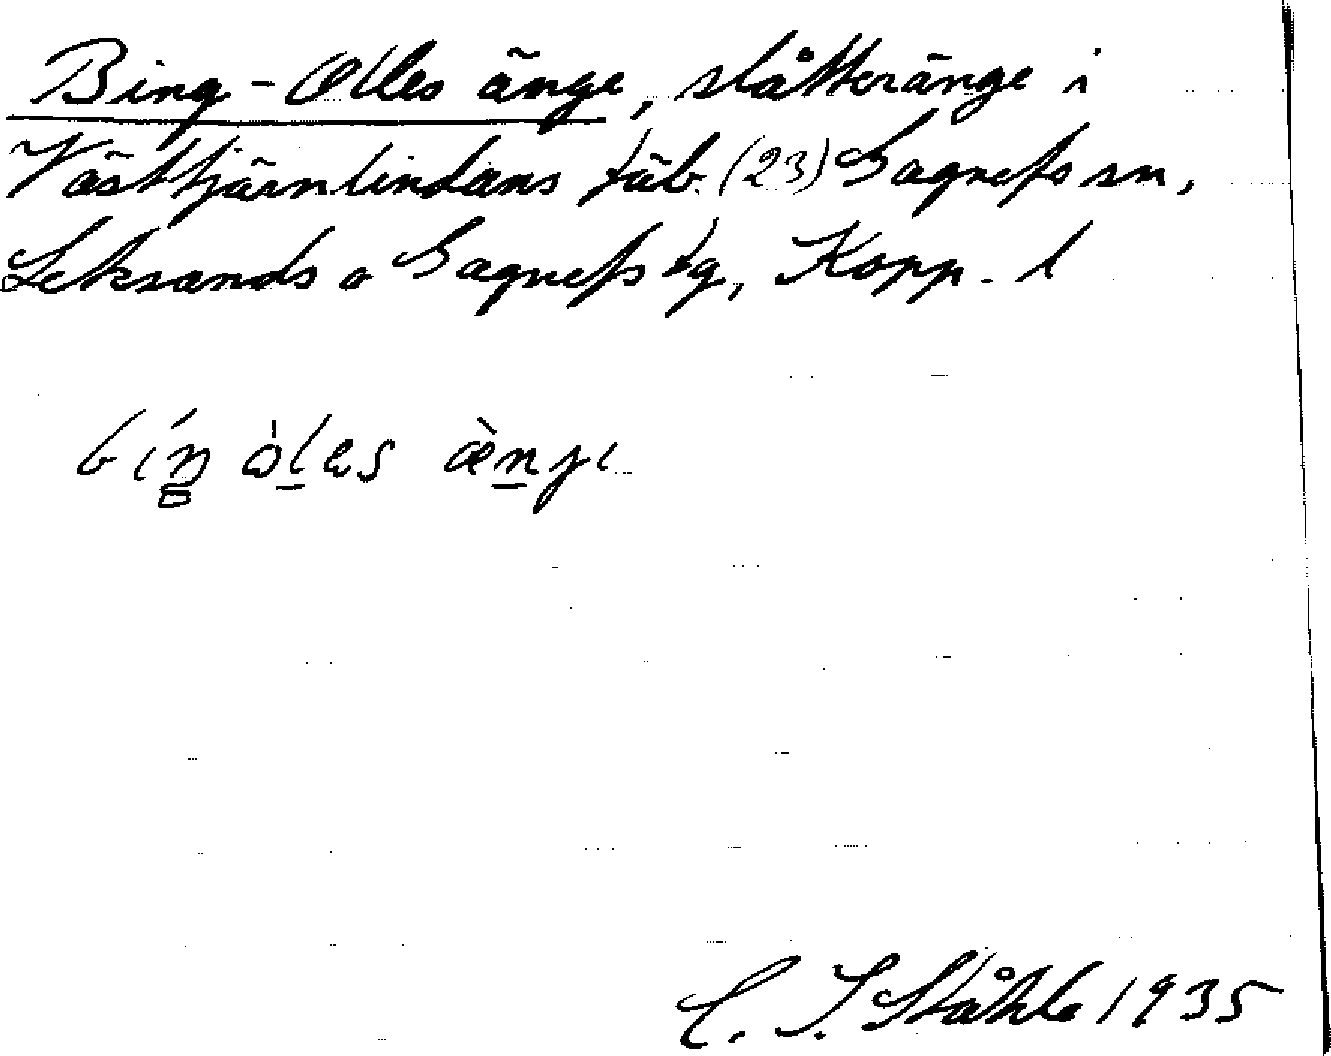 Bing-Olles änge, slåtteränge i
Västtjärnlindans fäb. (23) Gagnefs sn,
Leksands o Gagnefs tg, Kopp. l
bíŋ òles æ̀nɟɩ
C. I. Ståhle 1935